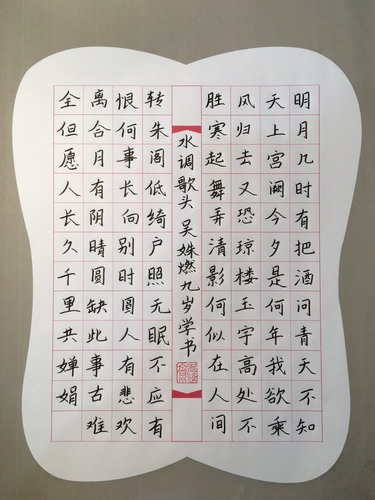 明月几时有把酒问青天不知
天上宫阙今夕是何年我欲乘
风归去又恐琼楼玉宇高处不
胜寒起舞弄清影何似在人间
水调歌头 吴姝燃九岁学书
转朱阁低绮户照无眠不应有
恨何事长向别时圆人有悲欢
离合月有阴晴圆缺此事古难
全但愿人长久千里共婵娟